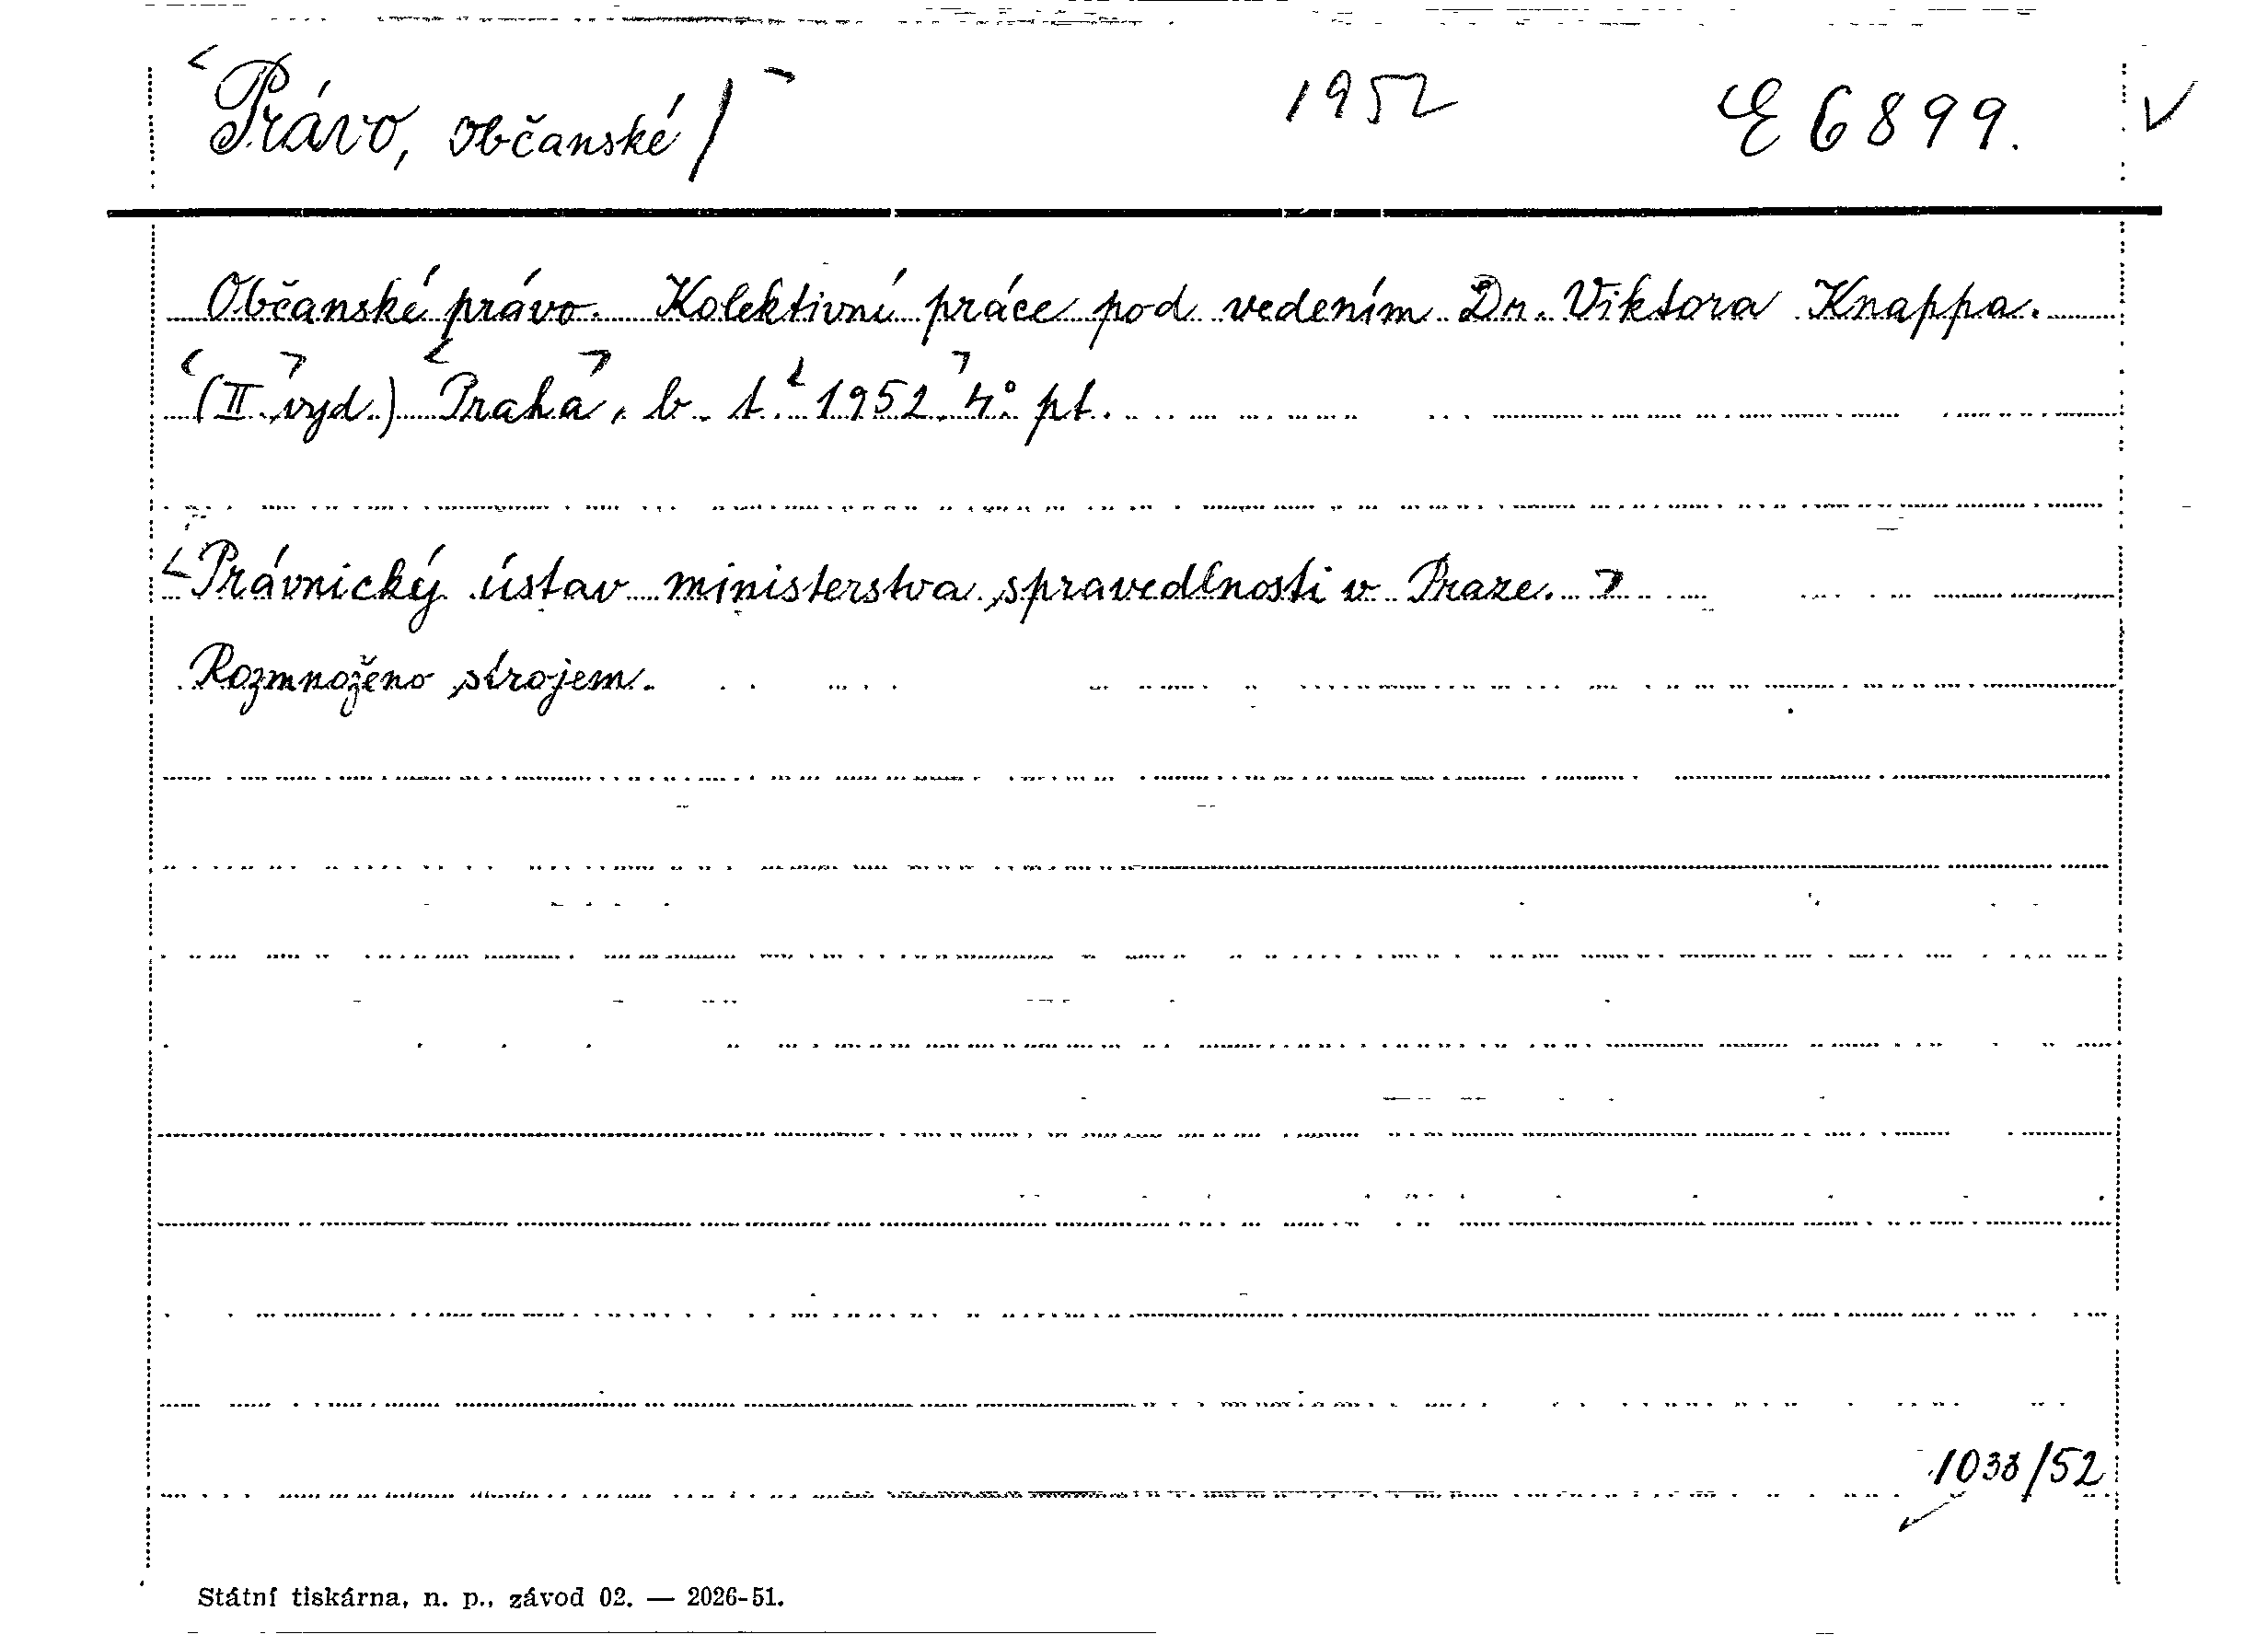 <Právo, občanské/> 1952 E 6899. √
Občanské právo. Kolektivní práce pod vedením Dr. Viktora Knappa.
<(II. vyd.)> <Praha>, b. t. <1952.> 4° pt.
<Právnický ústav ministerstva spravedlnosti v Praze.>
Rozmnoženo strojem.
1038/52
Státní tiskárna, n. p., závod 02. — 2026-51.